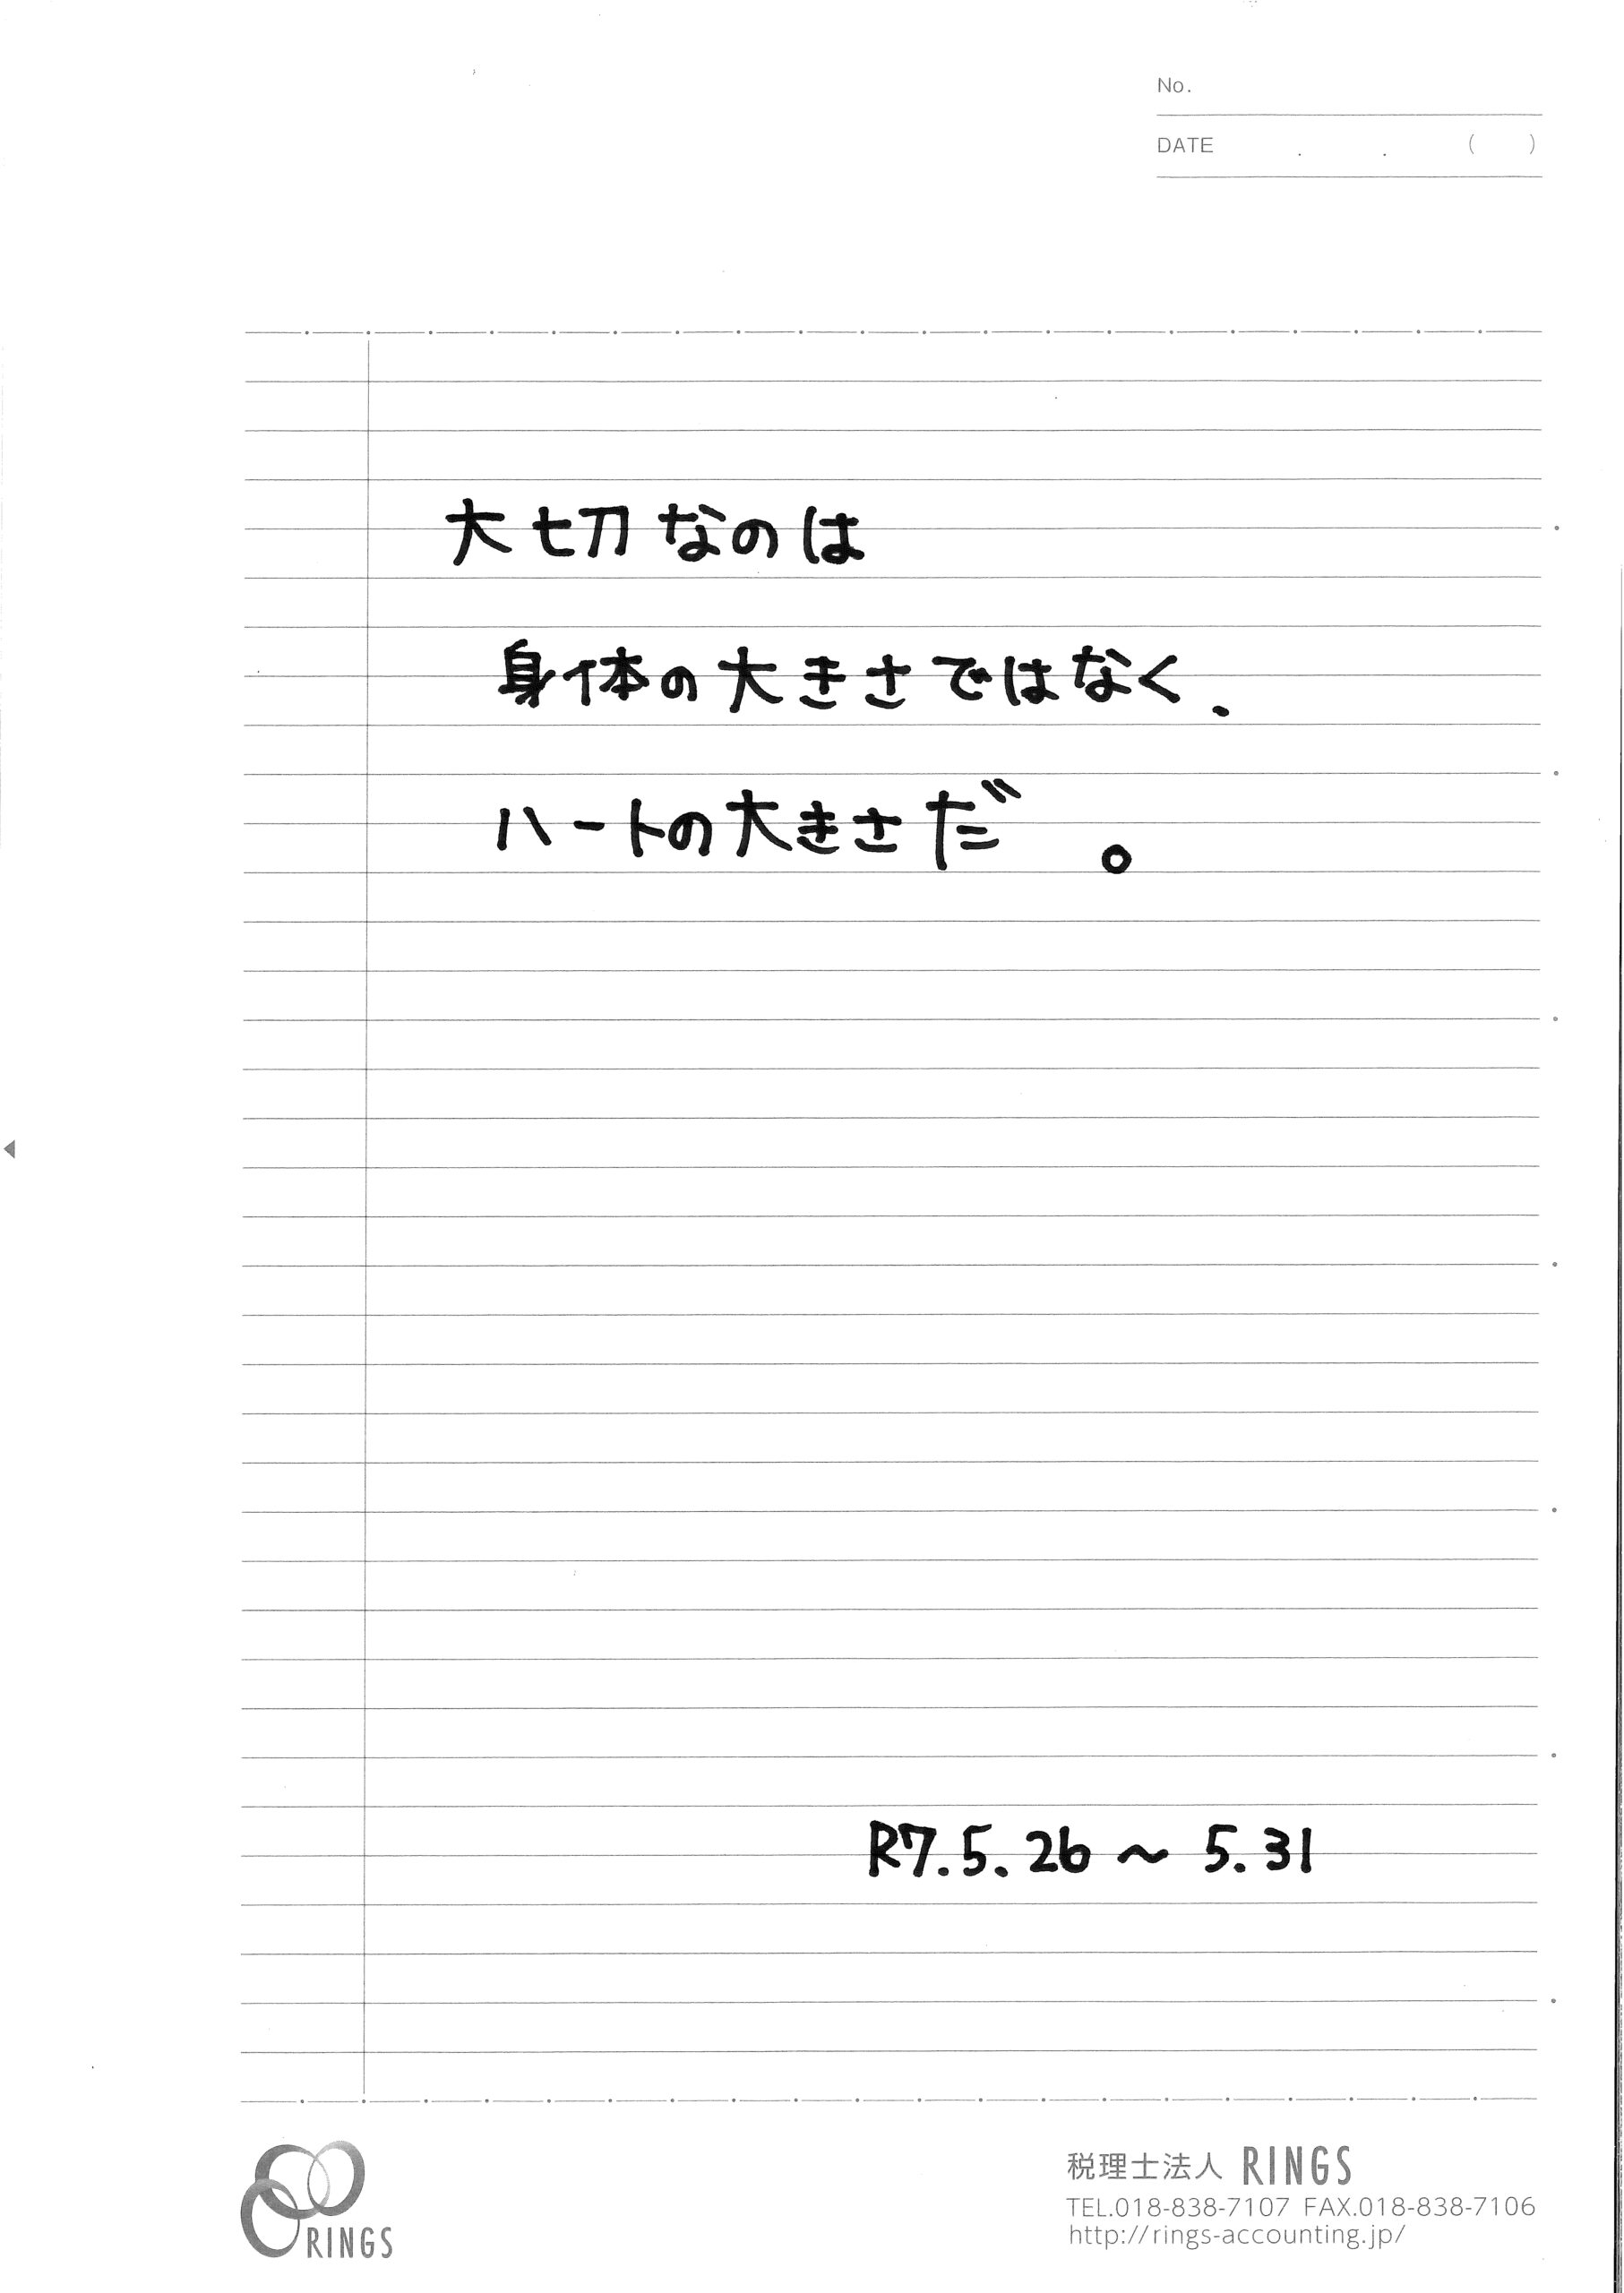 No.
DATE . . ( )
大切なのは
身体の大きさではなく、
ハートの大きさだ。
R7.5.26 〜 5.31
RINGS
税理士法人 RINGS
TEL.018-838-7107 FAX.018-838-7106
http://rings-accounting.jp/